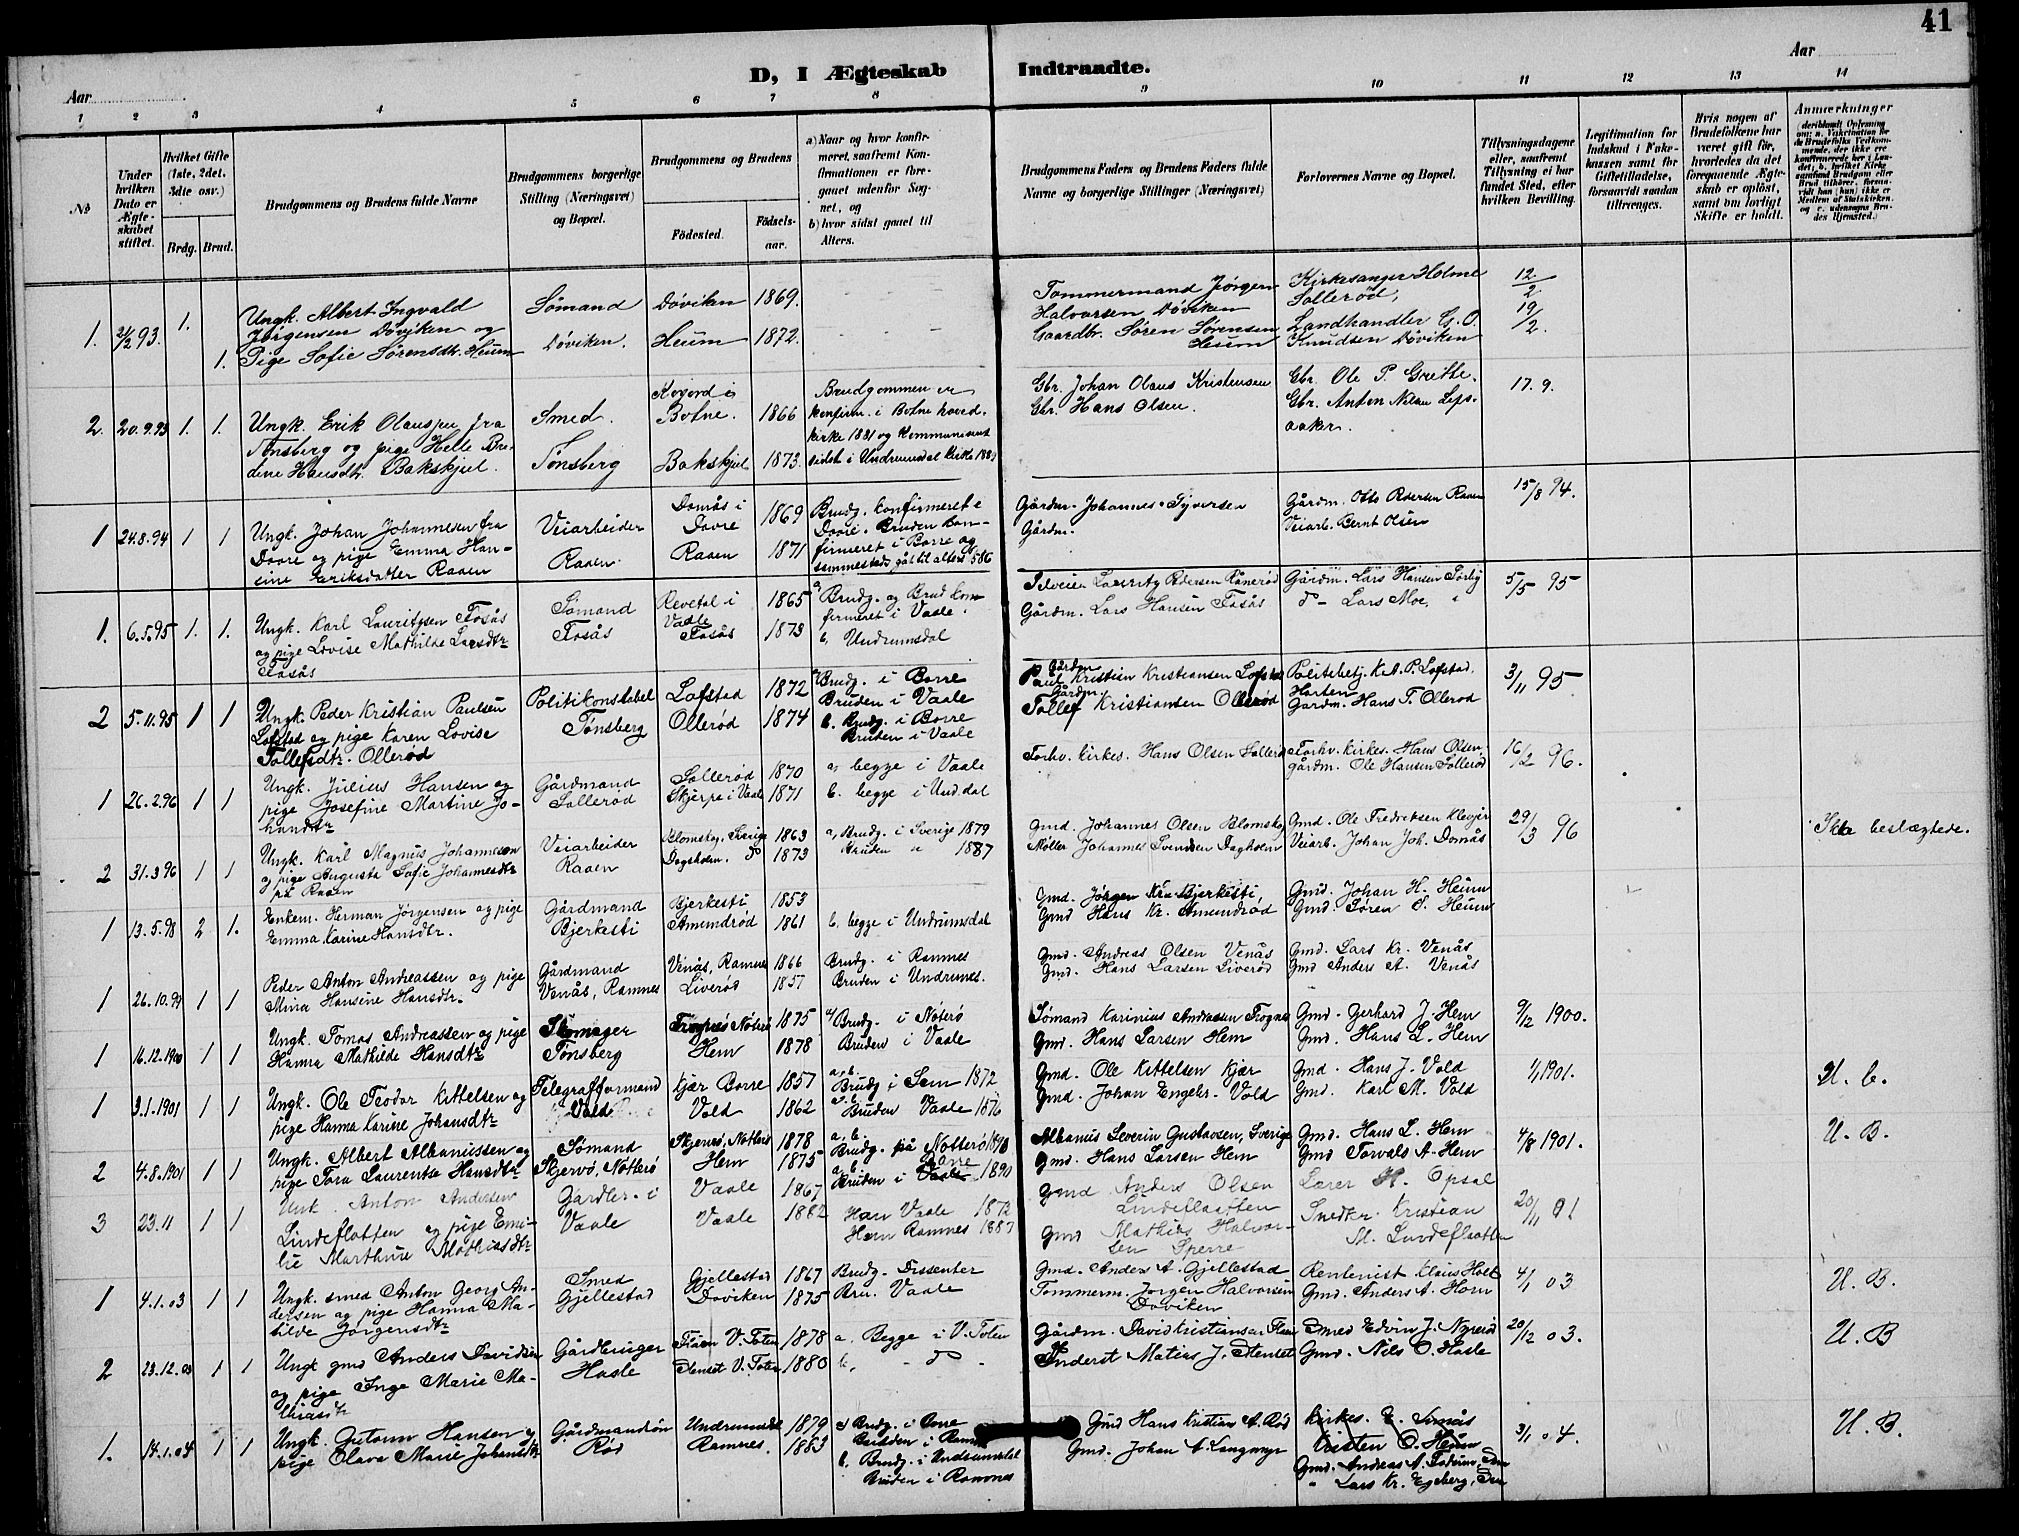 41
D, I Ægteskab Indtraadte.
Aar
Aar
1 2 3 4 5 6 7 8 9 10 11 12 13 14
№
Under hvilken Dato er Ægteskabet stiftet.
Hvilket Gifte (1ste, 2det, 3die osv.)
Brdg. Brud.
Brudgommens og Brudens fulde Navne
Brudgommens borgerlige Stilling (Næringsvei) og Bopæl.
Brudgommens og Brudens
Födested.
Födselsaar.
a) Naar og hvor konfirmeret, saafremt Konfirmationen er foregaaet udenfor Sognet, og
b) hvor sidst gaaet til Alters.
Brudgommens Faders og Brudens Faders fulde Navne og borgerlige Stillinger (Næringsvei)
Forlovernes Navne og Bopæl.
Tillysningsdagene eller, saafremt Tillysning ei har fundet Sted, efter hvilken Bevilling.
Legitimation for Indskud i Enkekassen samt for Giftetilladelse, forsaavidt saadan tiltrænges.
Hvis nogen af Brudefolkene har været gift för, hvorledes da det foregaaende Ægteskab er oplöst, samt om lovligt Skifte er holdt.
Anmærkninger
1. 2/2 93. 1. 1.
Ungk. Albert Ingvald
Jørgensen Døviken og
Pige Sofie Sørensdtr. Heum
Sømand
Døviken.
Døviken 1869.
Heum 1872.
Tommermand Jørgen
Halvorsen Døviken
Gaardbr. Søren Sørensen
Heum
Kirkesanger Holme
Sollerød,
Landhandler G. O.
Knudsen Døviken
12/2
19/2.
2. 20.9.93 1. 1.
Ungk. Erik Olaussen fra
Tønsberg og pige Helle Bre-
dine Hansdtr. Bakskjul.
Smed.
Tønsberg
Botne. 1866
Bakskjul 1873.
Brudgommen er
konfirm. i Botne hoved-
kirke 1881 og kommuniceret
sidst i Undrumsdal Kirke
Gbr. Johan Olaus Kristensen
Gbr. Hans Olsen.
Gbr. Ole P. Grette.
Gbr. Anton Nilsen Leps-
aaker.
17. 9.
1 24.8.94 1 1
Ungk. Johan Johannesen fra
Dovre og pige Emma Han-
sine Eriksdatter Raaen
Veiarbeider
Raaen.
Domås i
Dovre 1869
Raaen 1871
Brudg. konfirmeret i
Dovre. Bruden kon-
firmeret i Borre og
sammesteds gåt til alters 5/86
Gårdm. Johannes Syversen
Gårdm.
Gårdm. Otto Pedersen Raaen
Veiarb. Bernt Olsen
15/8 94.
1. 6.5.95 1. 1.
Ungk. Karl Lauritzsen Fosås
og pige Lovise Mathilde Larsdtr
Fosås
Sømand
Fosås
Revetal i
Vaale 1865
Fosås 1873
a, Brudg. og Brud kon-
firmeret i Vaale.
b, Undrumsdal
Selveier Lauritz Pedersen Rånerød
Gårdm. Lars Hansen Fosås
Gårdm. Lars Hansen Sørby
do - Lars Moe.
5/5 95
2 5.11.95 1 1
Ungk. Peder Kristian Paulsen
Lofstad og pige Karen Lovise
Tollefsdtr. Ollerød
Politikonstabel
Tønsberg
Lofstad 1872
Ollerød 1874
a, Brudg. i Borre
Bruden i Vaale
b. Brudg. i Borre
Bruden i Vaale
Gårdm
Paul Kristian Kristiansen Lofstad
Gårdm.
Tollef Kristiansen Ollerød
Politibetj. K. A. P. Lofstad.
Horten
Gårdm. Hans T. Ollerød
3/11 95.
1 26.2.96 1 1
Ungk. Julius Hansen og
pige Josefine Martine Jo-
hansdtr
Gårdmand
Sollerød
Sollerød 1870
Skjerpe i Vaale 1871
a, begge i Vaale
b. begge i Und.dal
Forhv. kirkes. Hans Olsen Sollerød
Forhv. Kirkes. Hans Olsen.
gårdm. Ole Hansen Sollerød
16/2 96.
2 31.3.96 1 1
Ungk. Karl Magnus Johannesen
og pige Augusta Sofie Johannesdtr
på Raaen
Veiarbeider
Raaen
Blomskog, Sverige 1863
Dagsholm. do 1873
a, Brudg. i Sverige 1879
Bruden " 1887
Gmd. Johannes Olsen Blomskog
Møller Johannes Svendsen Dagholm
Gmd. Ole Fredriksen Klevjer
Veiarb. Johan Joh. Domås
29/3 96
Ikke beslægtede.
1 13.5.98 2 1.
Enkem. Herman Jørgensen og pige
Emma Karine Hansdtr.
Gårdmand
Bjerkesti
Bjerkesti 1853
Amundrød 1861
b, begge i Undrumsdal
Gmd. Jörgen Bjerkesti,
Gmd Hans Kr. Amundrød
Gmd. Johan H. Heum
Gmd. Søren S. Heum
1 26.10.99 1 1
Peder Anton Andreassen og pige
Mina Hansine Hansdtr.
Gårdmand
Venås, Ramnes
Venås, Ramnes 1866
Liverød 1857
Brudg. i Ramnes
Bruden i Undrums.
Gmd. Andreas Olsen Venås
Gmd. Hans Larsen Liverød
Gmd. Lars Kr. Venås
Gmd Anders A. Venås
1 16.12.1900 1 1
Ungk. Tomas Andreassen og pige
Hanna Mathilde Hansdtr
Skomager
Tønsberg
Nøterø 1875
Hem 1878
a, Brudg. i Nøterø
Bruden i Vaale
Sømand Karinius Andreasen Trogne
Gmd. Hans Larsen Hem
Gmd. Gerhard J. Hem
Gmd. Hans L. Hem
9/12 1900.
1 3.1.1901 1 1
Ungk. Ole Teodor Kittelsen og
pige Hanna Karine Johansdtr
Telegrafformand
Vold
Kjær Borre 1857
Vold 1862
a, b.
Brudg i Sem 1872
a, b.
Bruden Vaale 1876
Gmd. Ole Kittelsen Kjær
Gmd. Johan Engebr. Vold
Gmd. Hans J. Vold
Gmd. Karl M. Vold
1/1 1901.
U. b.
2 4.8.1901 1 1
Ungk. Albert Albanussen og
pige Tora Laurentse Hansdtr
Sømand
Skjervø, Nøtterø
Skjervø, Nøtterø 1878
Hem 1875
a, b.
Brudg. på Nøtterø 1890
a, b. Borre
Bruden i Vaale 1890
Albanus Severin Gustavsen, Sverige
Gmd. Hans Larsen Hem
Gmd. Hans L. Hem
Gmd Torvals A. Hem
4/8 1901.
U. B.
3 23.11 1 1
Unk. Anton Andersen
Lindeflatten og pige Emi-
lie Marthine Mathiasdtr
Gårdbr. i
Vaale
Vaale 1867
Vaale 1882
Han Vaale 1872
Hun Ramnes 1887
Gmd Anders Olsen
Lindeflaatten
Gmd Mathias Halvor-
sen Sperre
Lærer H. Opsal
Snedkr. Kristian
M. Lindeflaatten
20/11 01
1 4.1.03 1 1
Ungk. smed Anton Georg An-
dersen og pige Hanna Ma-
tilde Jørgensdtr
Smed
Gjellestad
Gjellestad 1867
Døviken 1875
Brudg. Dissenter
Bru. Vaale
Gmd. Anders A. Gjellestad
Tommerm. Jørgen Halvorsen
Døviken
Rentenist Klaus Holt
Gmd. Anders A. Horn
4/1 03
U. B.
2 23.12.03 1 1
Ungk gmd Anders Davidsen
og pige Inge Marie Ma-
thiasdtr
Gårdbruger
Hasle
Flåen V. Toten 1878
Stenset V. Toten 1880
a, Begge i V. Toten
b, - do -
Gårdm. David Kristiansen Flåen
Inderst Matias J. Stenset
Smed Edvin J. Nyrerød
Gmd. Nils O. Hasle
20/12 03.
U. B
1. 14.1.04 1 1
Ungk. Gutorm Hansen og
pige Olava Marie Johansdtr
Gårdmandssøn
Rød
Undrumsdal 1879
Ramnes. 1883
a) Brudg. i Borre
Bruden i Ramnes
b. Brudg. i Undrumsdal
Bruden i Ramnes
Gmd Hans Kristian A. Rød
Gmd. Johan A. Langmyr
Kirkes. E. Semås
Kristen O. Heum
Gmd. Andreas A.
" Lars Kr. Egeberg, Sem
3/1 04.
U. B.